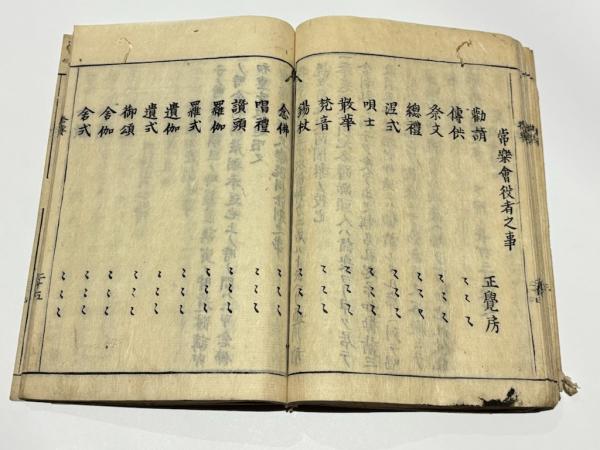 常樂會役者之事
勸請 正覺房
傳供 〻〻〻
祭文 〻〻〻
總禮 〻〻〻
涅式 〻〻〻
唄士 〻〻〻
散華 〻〻〻
梵音 〻〻〻
錫杖 〻〻〻
念佛 〻〻〻
唱禮 〻〻〻
讃頭 〻〻〻
羅伽 〻〻〻
羅式 〻〻〻
遺伽 〻〻〻
遺式 〻〻〻
御頌 〻〻〻
舍伽 〻〻〻
舍式 〻〻〻